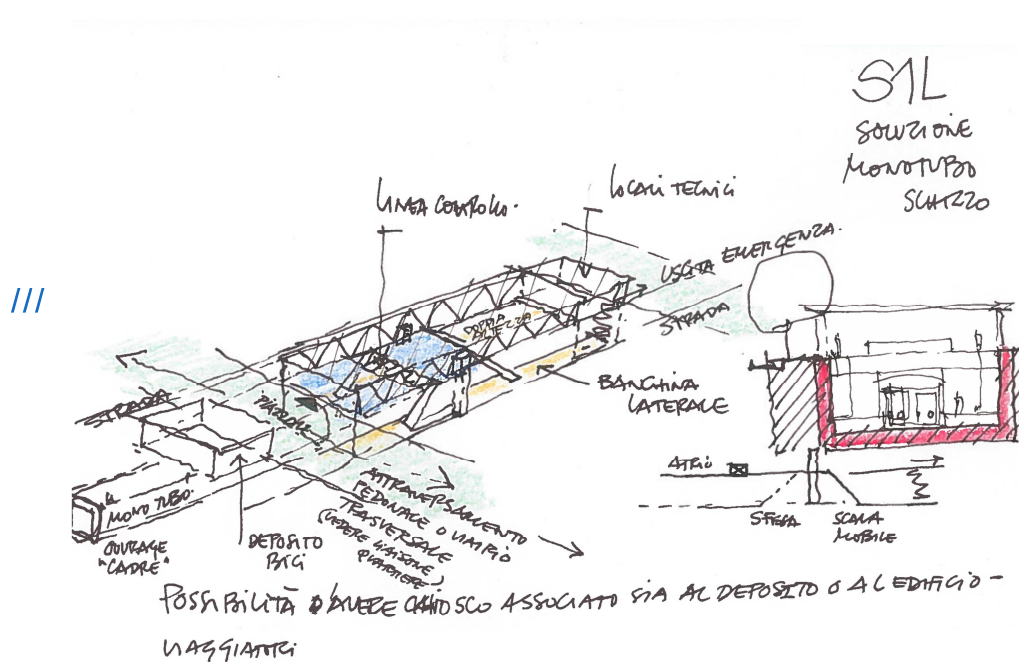 ///
S1L
SOLUZIONE
MONOTUBO
SCHIZZO
LINEA CONTROLLO.
LOCALI TECNICI
USCITA EMERGENZA.
STRADA
DOPPIA
ALTEZZA
BANCHINA
LATERALE
STRADA
PIAZZALE
MONO TUBO.
OUVRAGE
"CADRE"
DEPOSITO
BICI
ATTRAVERSAMENTO
PEDONALE O VIARIO
TRASVERSALE
(VEDERE LIAISONE
QUARTIERE)
ATRIO
SCALA
MOBILE
POSSIBILITÀ D'AVERE CHIOSCO ASSOCIATO SIA AL DEPOSITO O AL EDIFICIO -
VIAGGIATORI